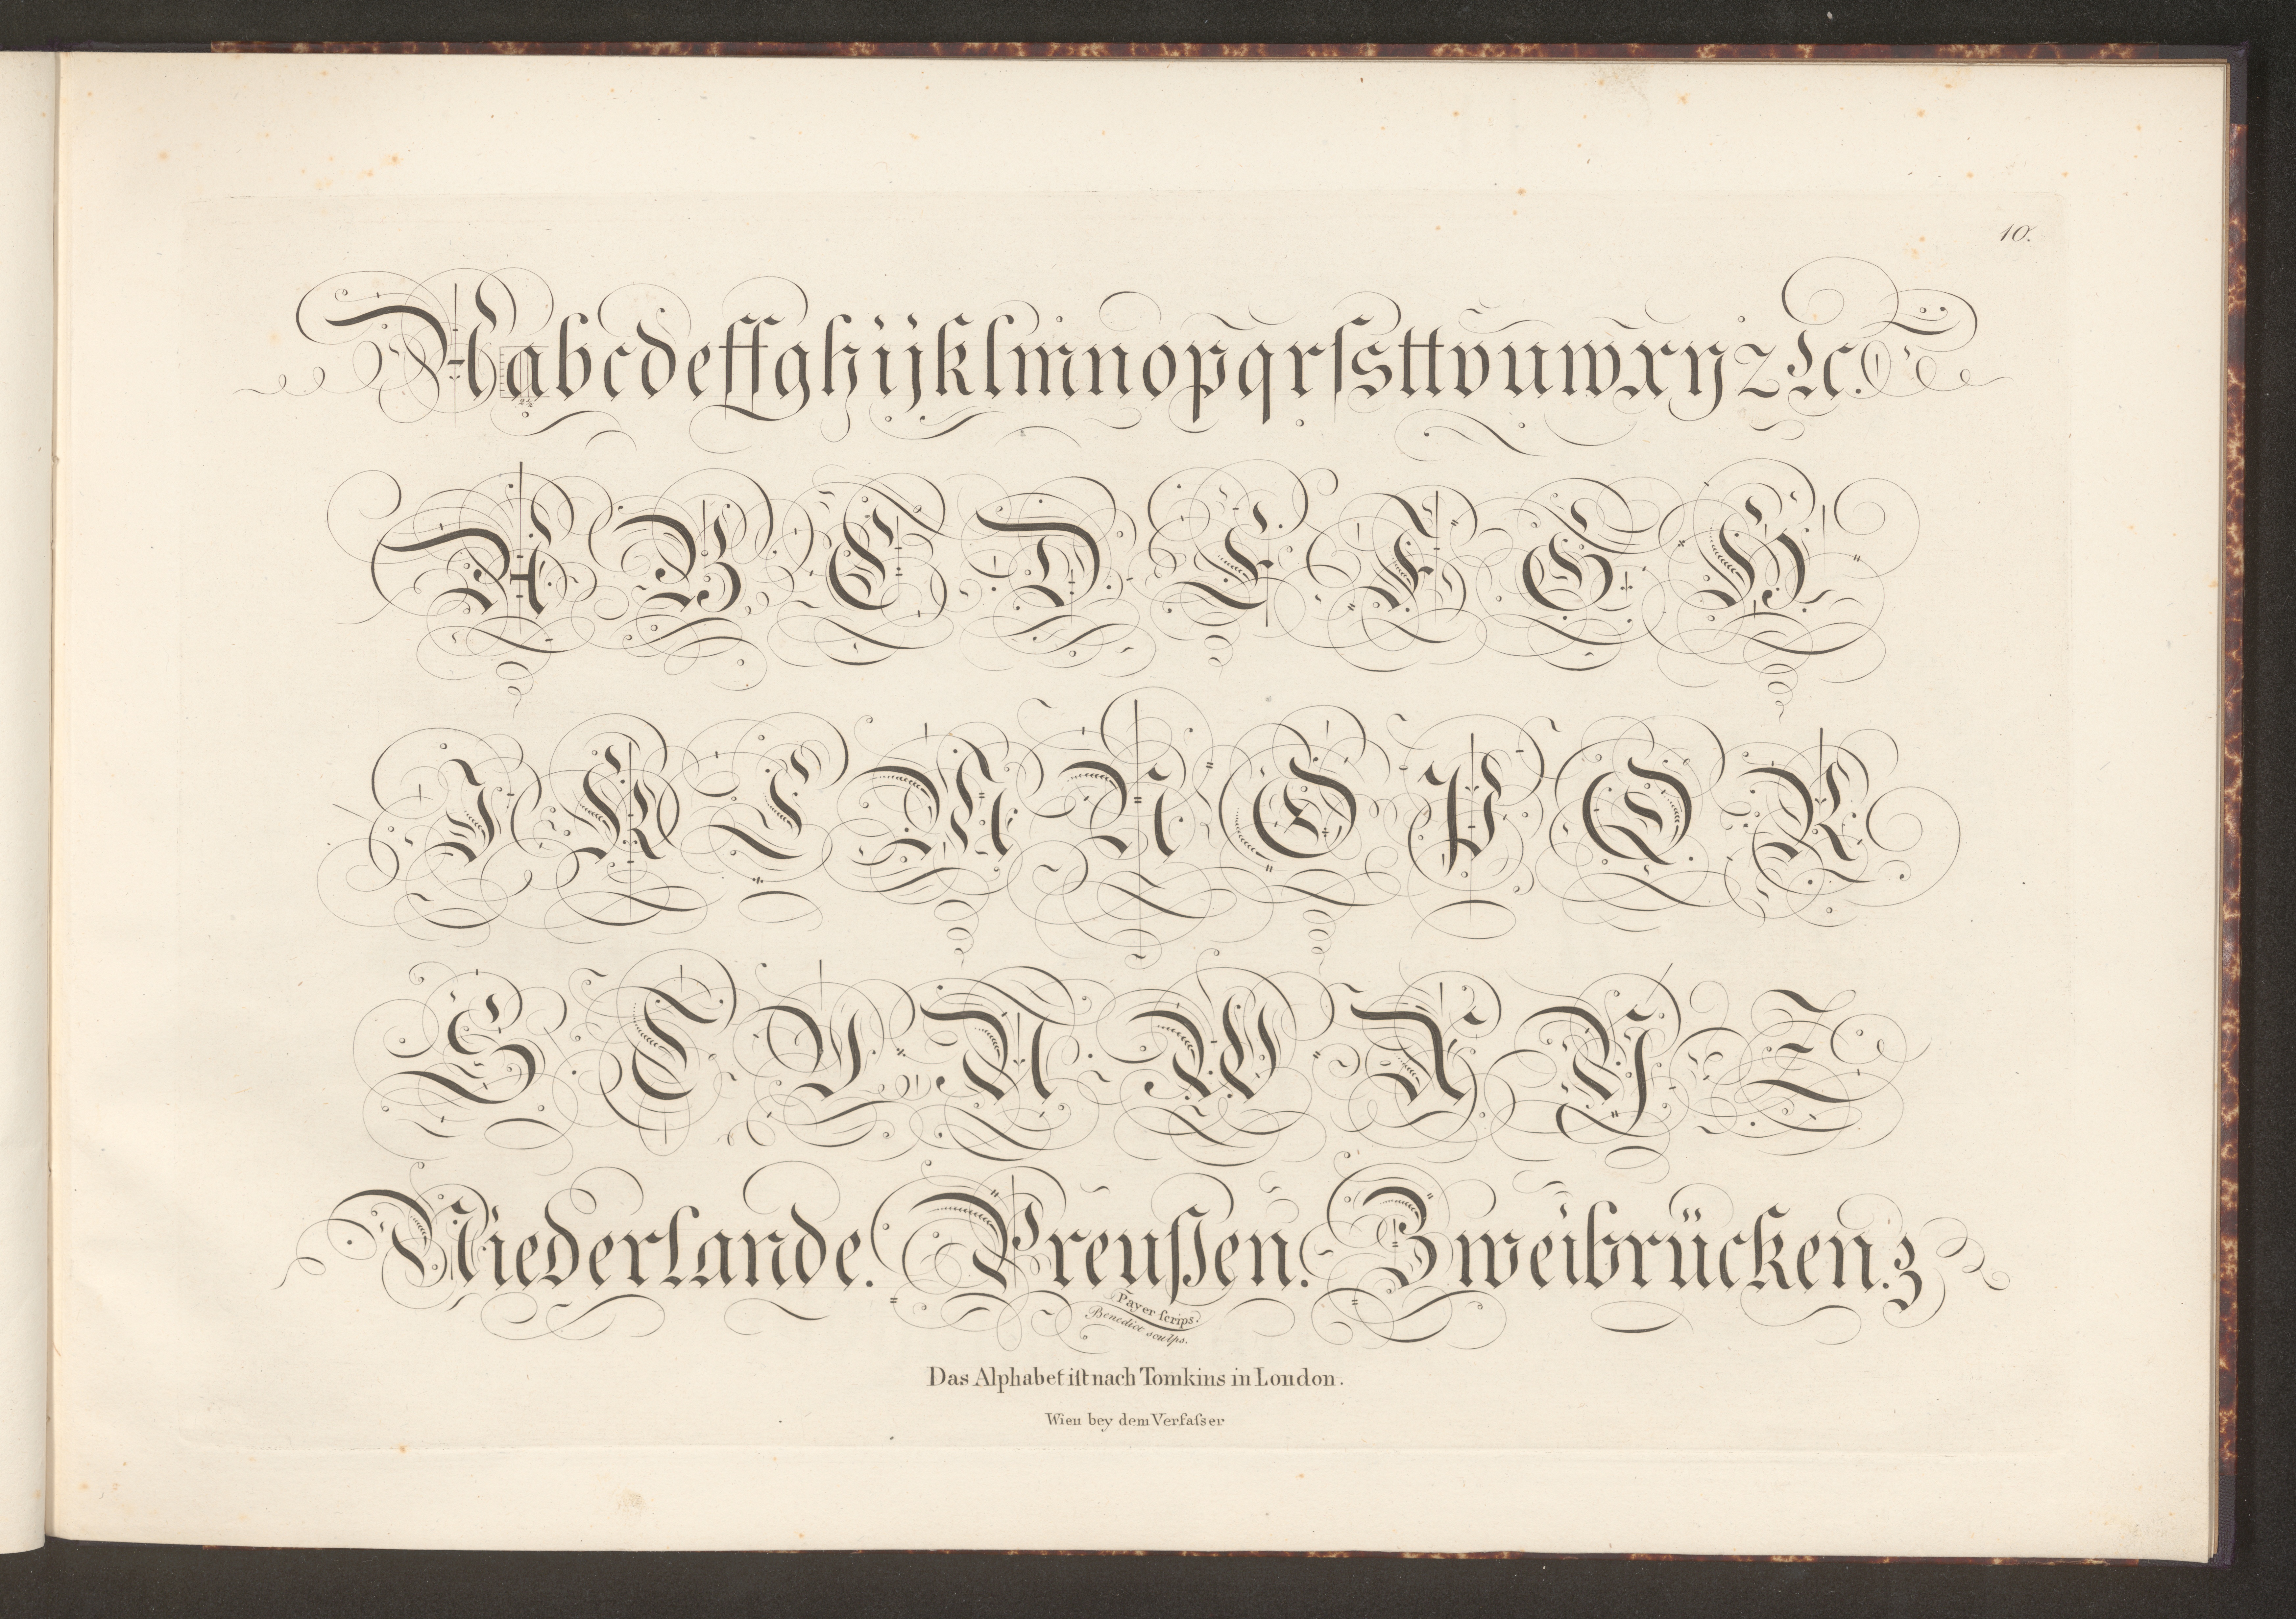 10.
Aabcdeffghijklmnopqrſsttvuwxyz &c.
A B C D E F G H
I K L M N O P Q R
S T V U W X Y Z
Niederlande. Preußen. Zweibrücken. z
Payer ſcrips.
Benedict sculps.
Das Alphabet iſt nach Tomkins in London.
Wien bey dem Verfaſser